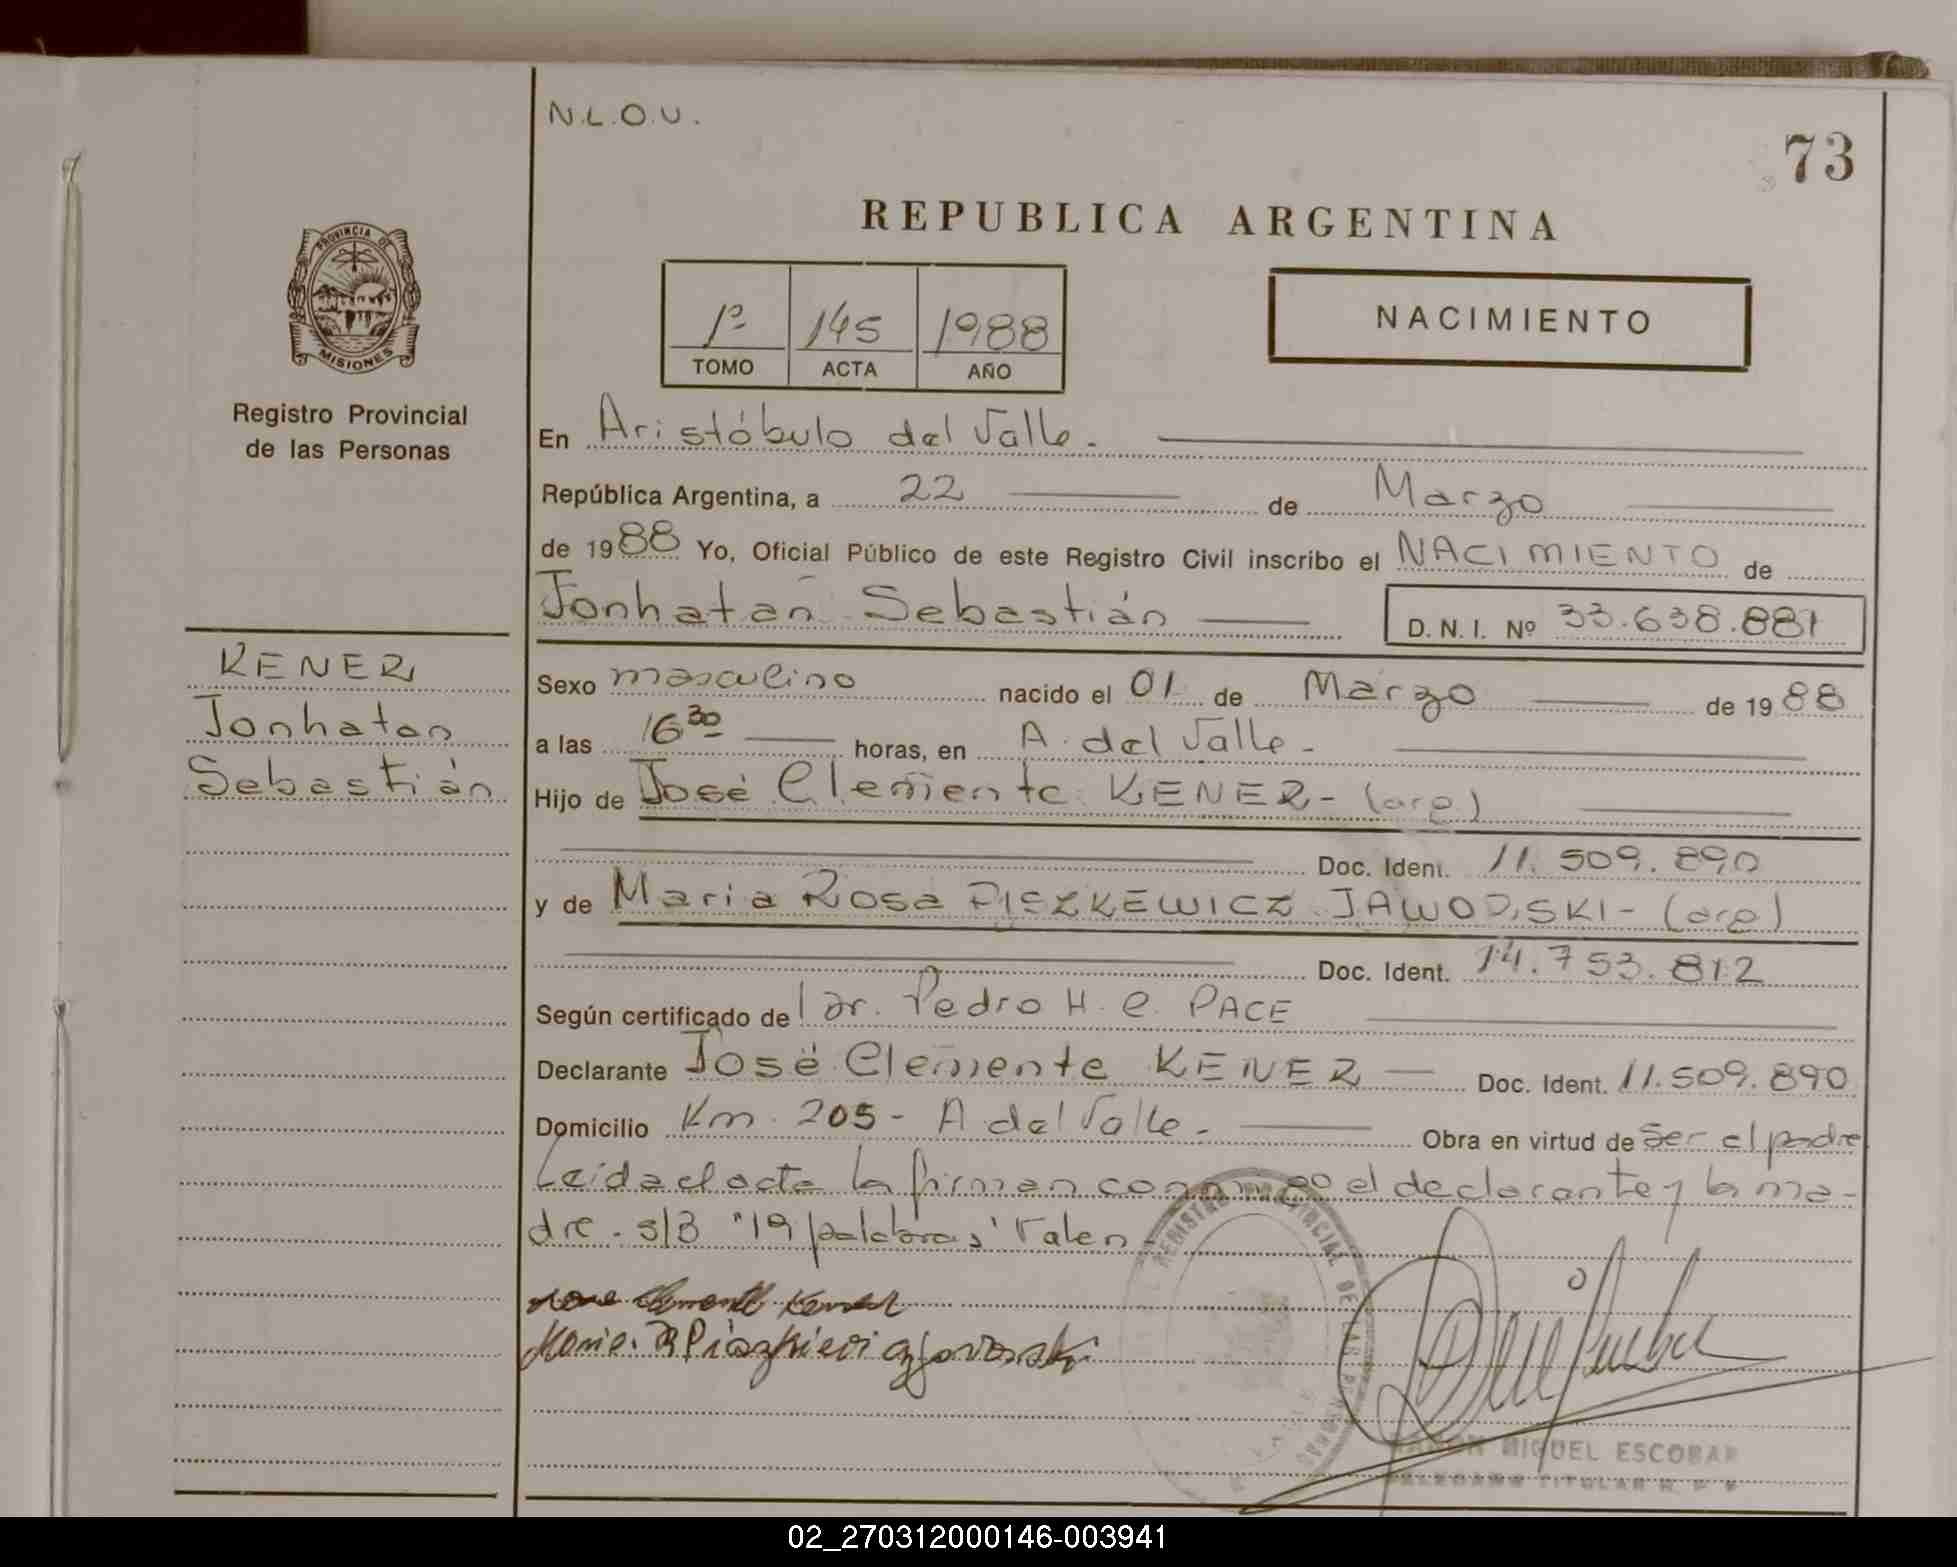 N.L.O.U.
73
REPUBLICA ARGENTINA
PROVINCIA DE
MISIONES
Registro Provincial
de las Personas
1º 145 1988
TOMO ACTA AÑO
NACIMIENTO
En Aristóbulo del Valle.
República Argentina, a 22 de Marzo
de 1988 Yo, Oficial Público de este Registro Civil inscribo el NACIMIENTO de
Jonhatan Sebastián
D.N.I. Nº 33.638.881
KENER
Jonhatan
Sebastián
Sexo masculino nacido el 01 de Marzo de 1988
a las 16 30 horas, en A. del Valle.
Hijo de José Clemente KENER - (arg)
Doc. Ident. 11.509.890
y de Maria Rosa PISZKEWICZ JAWORSKI - (arg)
Doc. Ident. 14.753.812
Según certificado de Dr. Pedro H. C. PACE
Declarante José Clemente KENER Doc. Ident. 11.509.890
Domicilio Km. 205 - A del Valle. Obra en virtud de Ser el padre
Leida el acta la firman conmigo el declarante y la ma-
dre. s/B "19 palabras" Valen
REGISTRO PROVINCIAL DE LAS PERSONAS
Jose Clemente Kener
RAMON MIGUEL ESCOBAR
DELEGADO TITULAR R. P. P.
02_270312000146-003941